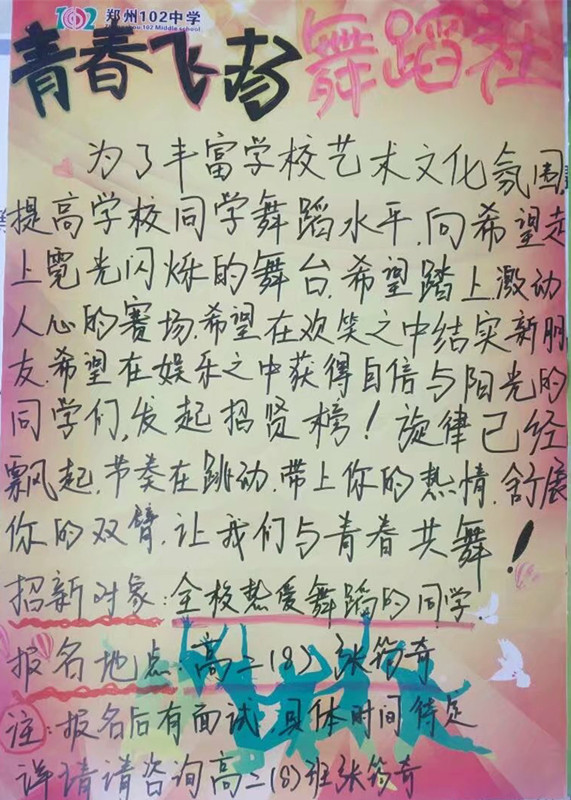 郑州102中学
青春飞扬舞蹈社
为了丰富学校艺术文化氛围
提高学校同学舞蹈水平,向希望走
上霓光闪烁的舞台,希望踏上激动
人心的赛场,希望在欢笑之中结实新朋
友,希望在娱乐之中获得自信与阳光的
同学们,发起招贤榜!旋律已经
飘起,节奏在跳动,带上你的热情,舒展
你的双臂,让我们与青春共舞!
招新对象:全校热爱舞蹈的同学.
报名地点:高二(8) 张筠奇
注:报名后有面试,具体时间待定
详请请咨询高二(8)班张筠奇